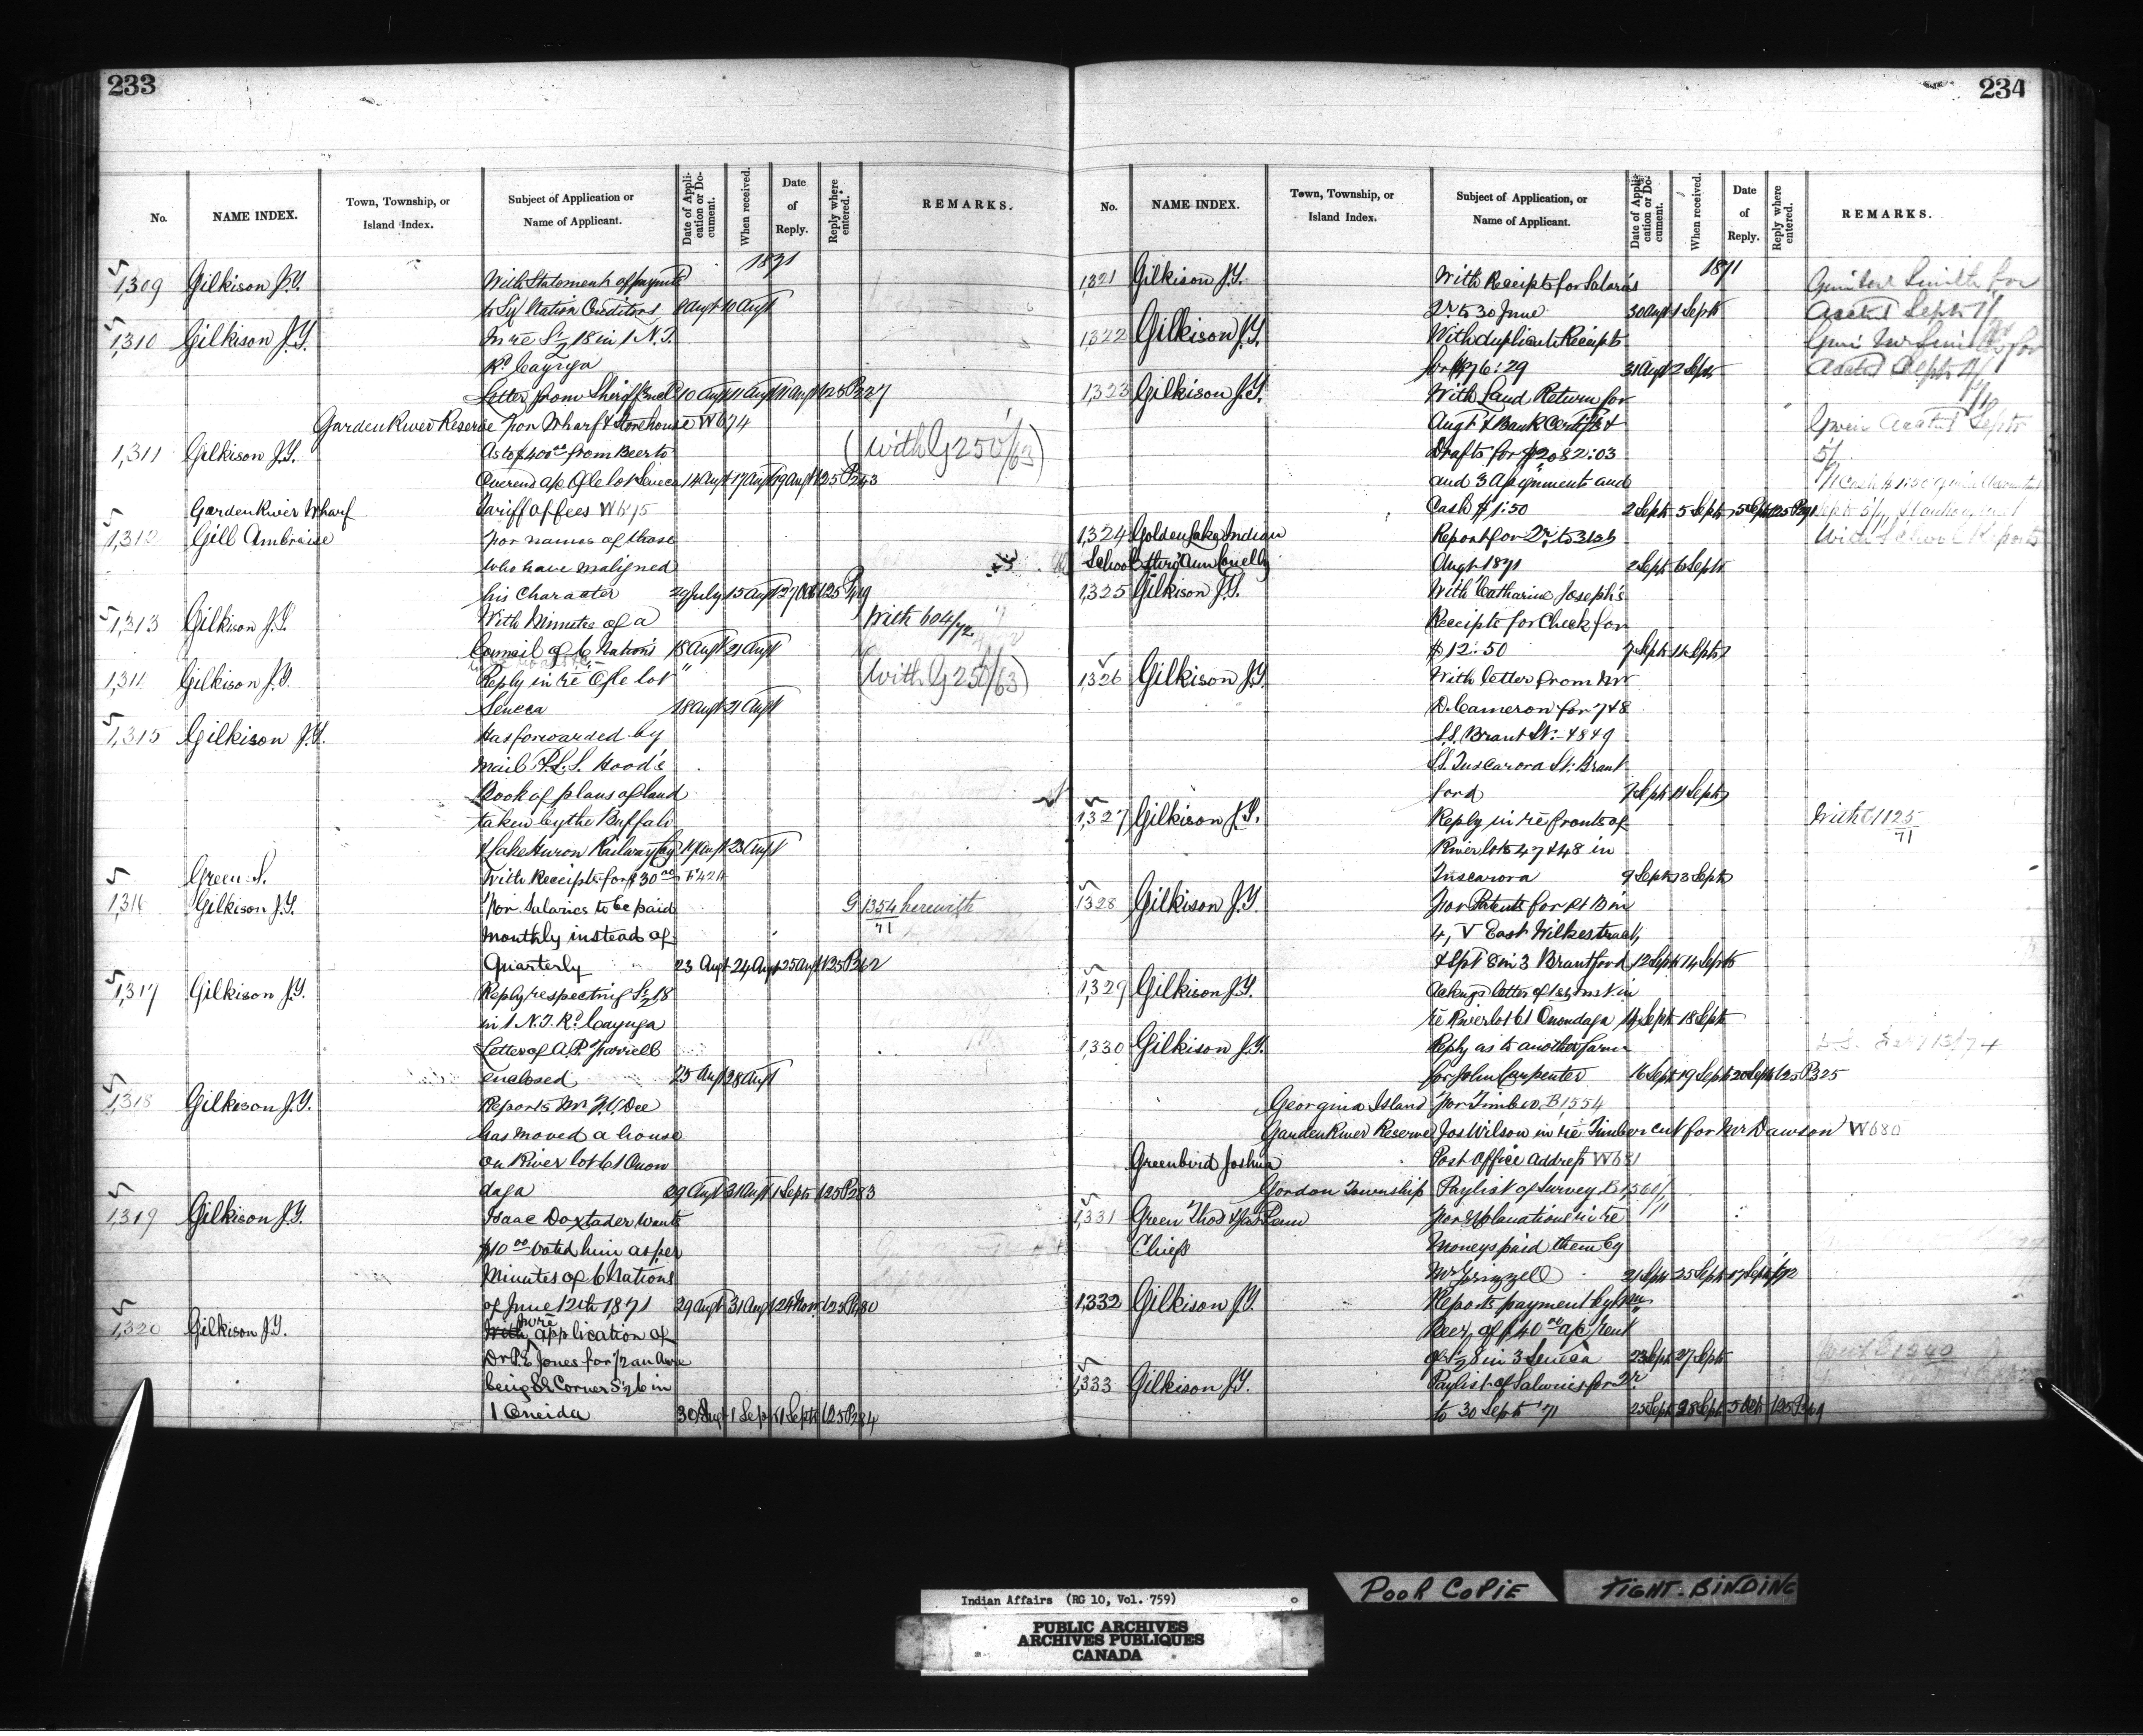 233
No.
NAME INDEX.
Town, Township, or Island Index.
Subject of Application or Name of Applicant.
Date of Application or Document.
When received.
Date of Reply.
Reply where entered.
REMARKS.
1871
1,309 Gilkison J.T. With Statement of paymts
to Six Nation Creditors 8 Augt 10 Augt
1,310 Gilkison J.T. In re S½ 18 in 1 N.T.
Rd Cayuga
Letter from Sheriff encld 10 Augt 11 Augt 11 Augt 125 P227
Garden River Reserve For Wharf & Storehouse W674
1,311 Gilkison J.T. As to $400.00 from Beer to (With G250/63)
a/c Ogle lot Seneca 14 Augt 17 Augt 19 Augt 125 P243
Garden River Wharf Tariff of fees W675
1,312 Gill Ambroise For names of those
who have maligned
his Character 29 July 15 Augt 27 Oct 125 P419
1,313 Gilkison J.T. With Minutes of a With 604/72
Council of 6 Nations 18 Augt 21 Augt
1,314 Gilkison J.T. Reply in re Ogle lot (With G250/63)
Seneca 18 Augt 21 Augt
1,315 Gilkison J.T. Has forwarded by
mail P.L.S. Hood's
Book of plans of land
taken by the Buffalo
& Lake Huron Railway Coy 19 Augt 23 Augt
Green S. With Receipts for $30.00 F424
1,316 Gilkison J.T. For Salaries to be paid G 1354/71 herewith
monthly instead of
Quarterly 23 Augt 24 Augt 25 Augt 125 P262
1,317 Gilkison J.T. Reply respecting S½ 18
in 1 N.T. Rd Cayuga
Letter of A.P. Farrell
enclosed 25 Augt 28 Augt
1,318 Gilkison J.T. Reports Mr Dee
has moved a house
on River lot 61 Onon
daga 29 Augt 31 Augt 1 Septr 125 P283
1,319 Gilkison J.T. Isaac Doxtader wants
$10.00 voted him as per
Minutes of 6 Nations
of June 12th 1871 29 Augt 31 Augt 24 Novr 125 P480
1,320 Gilkison J.T. With in re application of
Dr P.E. Jones for ½ an Acre
being SE Corner S½ 6 in
1 Oneida 30 Augt 1 Septr 1 Septr 125 P284
234
No.
NAME INDEX.
Town, Township, or Island Index.
Subject of Application, or Name of Applicant.
Date of Application or Document.
When received.
Date of Reply.
Reply where entered.
REMARKS.
1871
1,321 Gilkison J.T. With Receipts for Salaries Smith for
Qr to 30 June 30 Augt 1 Septr Acctt Septr
1,322 Gilkison J.T. With duplicate Receipts
for 31 Augt 2 Septr
1,323 Gilkison J.T. With Land Return for
Augt & Bank Certifs &
Drafts for $2082:03
and 3 Assignments and
Cash $1:50 2 Septr 5 Septr 5 Septr 125 P291
1,324 Golden Lake Indian Report for Qr to 31st With School Reports
School Augt 1871 2 Septr 6 Septr
1,325 Gilkison J.T. With Catharine Joseph's
Receipts for Check for
$12:50 7 Septr 11 Septr
1,326 Gilkison J.T. With letter from Mr
D. Cameron for 7 & 8
S.S. Brant St. & 8 & 9
S.S. Tuscarora St. Brant
ford 7 Septr 11 Septr
1,327 Gilkison J.T. Reply in re fronts of With C1125/71
River lots 47 & 48 in
Tuscarora 9 Septr 13 Septr
1,328 Gilkison J.T. For Patents for Pt B in
4, V East Wilkes tract,
& Spt 8 in 3 Brantford 12 Septr 14 Septr
1,329 Gilkison J.T. Ackngs letter of 1st inst in
re River lot 61 Onondaga 14 Septr 18 Septr
1,330 Gilkison J.T. Reply as to another farm
for John Carpenter 16 Septr 19 Septr 20 Septr 125 P325
Georgina Island For Timber B1554
Garden River Reserve Jos Wilson in re Timber cut for Mr Dawson W680
Greenbird Joshua Post Office address W681
Gordon Township Paylist of Survey B1560/71
1,331 Green Thos For explanations in re
Chiefs Moneys paid them by
Mr Grizzell 21 Septr 25 Septr
1,332 Gilkison J.T. Reports payment by Wm
Beer of $40.00 a/c rent
of S½ 8 in 3 Seneca 23 Septr 27 Septr
1,333 Gilkison J.T. Paylist of Salaries for Qr
to 30 Septr '71 25 Septr 28 Septr 5 Oct 125
Indian Affairs (RG 10, Vol. 759)
PUBLIC ARCHIVES
ARCHIVES PUBLIQUES
CANADA
POOR COPIE
TIGHT-BINDING